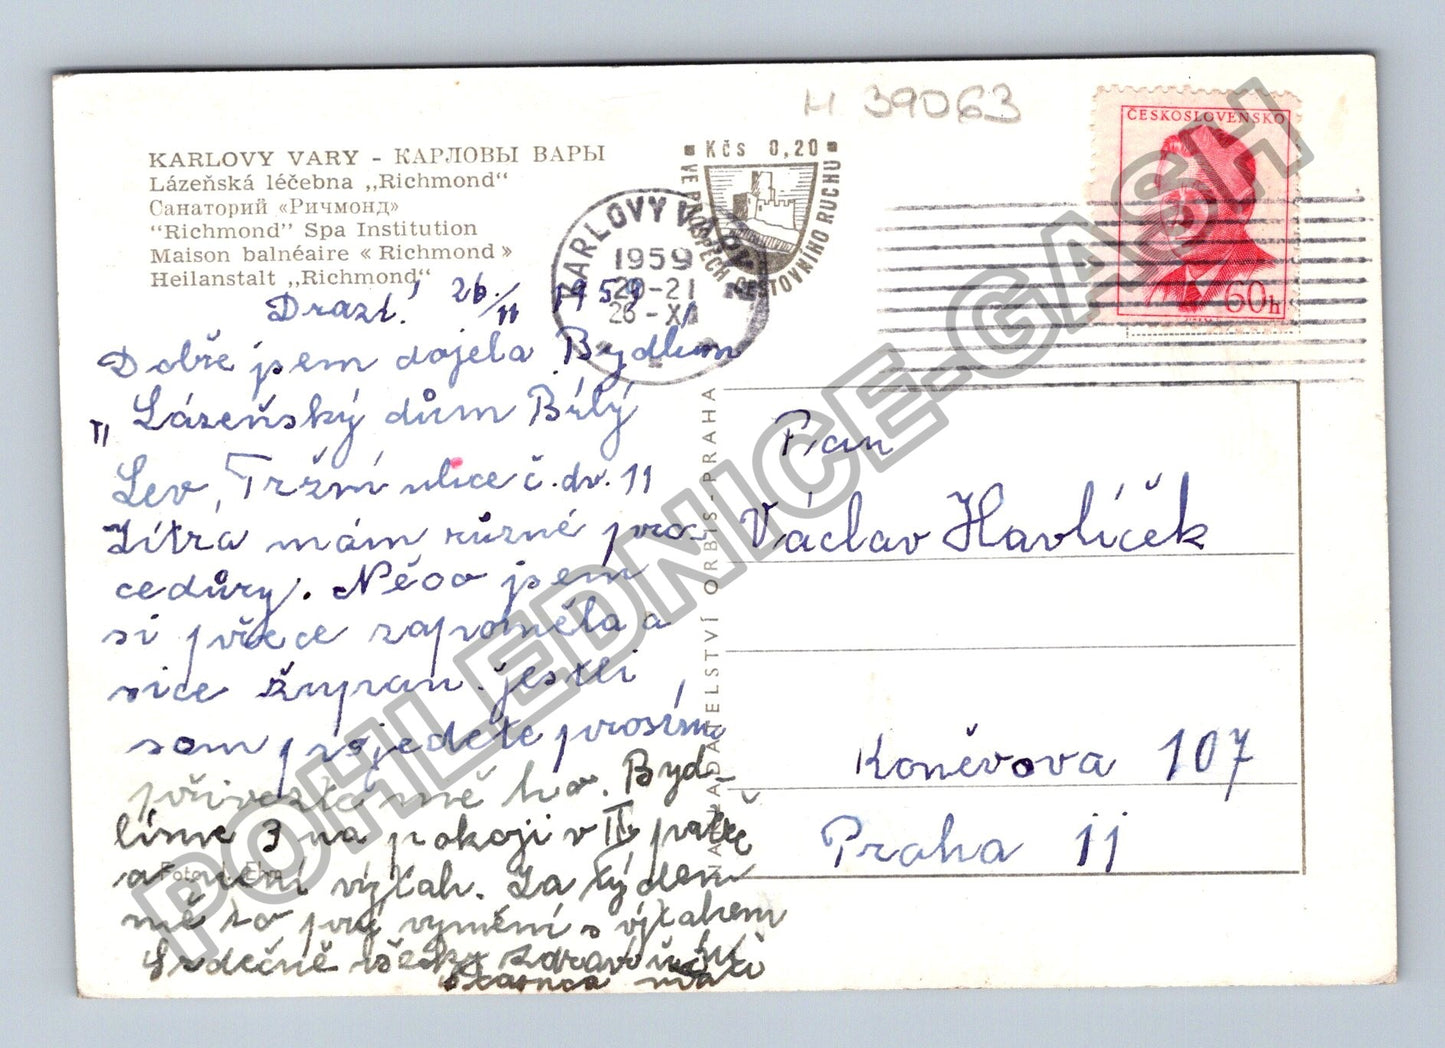 H 39063
KARLOVY VARY - КАРЛОВЫ ВАРЫ
Lázeňská léčebna „Richmond“
Санаторий «Ричмонд»
"Richmond" Spa Institution
Maison balnéaire « Richmond »
Heilanstalt „Richmond“
Kčs 0,20
VE PROSPĚCH CESTOVNÍHO RUCHU
KARLOVY VARY
1959
20-21
26-XI
ČESKOSLOVENSKO
60h
Drazí! 26/11 1959
Dobře jsem dojela Bydlím
„Lázeňský dům Bílý
Lev, Tržní ulice č. dv. 11
Zítra mám různé pro-
cedůry. Něco jsem
si přece zapoměla a
sice župan. jestli
sem přijedete prosím
přivezte mě ho. Byd-
líme 3 na pokoji v II patře
a není výtah. Za týden
mě to prý vymění s výtahem
Srdečně všecky zdraví
Foto
NAKLADATELSTVÍ ORBIS - PRAHA
Pan
Václav Havlíček
Koněvova 107
Praha 11
POHLEDNICE-GASH